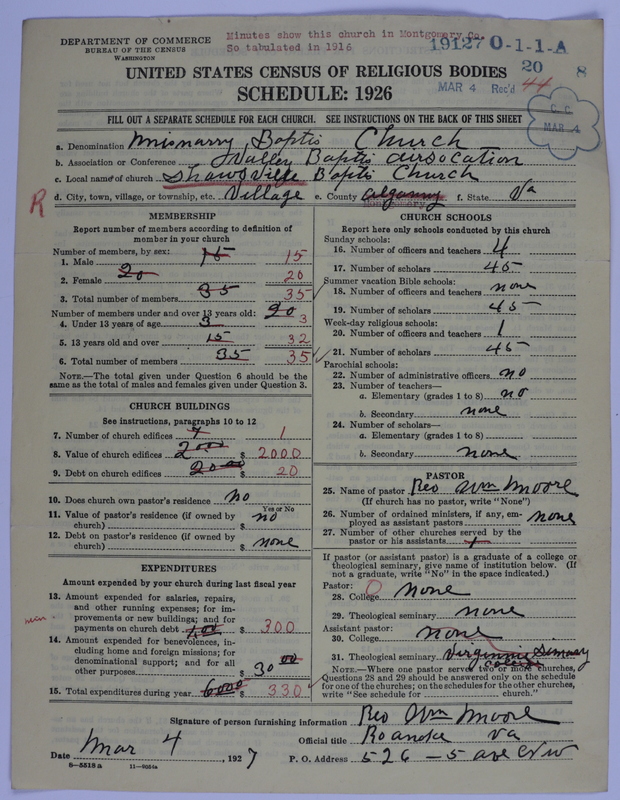 DEPARTMENT OF COMMERCE
BUREAU OF THE CENSUS
WASHINGTON
Minutes show this church in Montgomery Co.
So tabulated in 1916
19127 0-1-1-A
20 8
MAR 4 Rec'd 44
C. C.
MAR 4
UNITED STATES CENSUS OF RELIGIOUS BODIES
SCHEDULE: 1926
FILL OUT A SEPARATE SCHEDULE FOR EACH CHURCH. SEE INSTRUCTIONS ON THE BACK OF THIS SHEET
a. Denomination Misionarry Baptis Church
b. Association or Conference Valley Baptis
c. Local name of church Shawsville Baptis Church
R
d. City, town, village, or township, etc. Village e. County Montgomery f. State Va
MEMBERSHIP
Report number of members according to definition of
member in your church
Number of members, by sex:
1. Male 15 15
2. Female 20 20
3. Total number of members 35 35
Number of members under and over 13 years old: 20
4. Under 13 years of age 3 3
5. 13 years old and over 15 32
6. Total number of members 35 35
NOTE.—The total given under Question 6 should be the
same as the total of males and females given under Question 3.
CHURCH BUILDINGS
See instructions, paragraphs 10 to 12
7. Number of church edifices 1
8. Value of church edifices $ 2000
9. Debt on church edifices $ 20
10. Does church own pastor's residence No
Yes or No
11. Value of pastor's residence (if owned by
church) no $
12. Debt on pastor's residence (if owned by
church) $ none
EXPENDITURES
Amount expended by your church during last fiscal year
13. Amount expended for salaries, repairs,
and other running expenses; for im-
provements or new buildings; and for
payments on church debt $ 300
14. Amount expended for benevolences, in-
cluding home and foreign missions; for
denominational support; and for all
other purposes $ 30 00
15. Total expenditures during year $ 330
CHURCH SCHOOLS
Report here only schools conducted by this church
Sunday schools:
16. Number of officers and teachers 4
17. Number of scholars 45
Summer vacation Bible schools:
18. Number of officers and teachers none
19. Number of scholars 45
Week-day religious schools:
20. Number of officers and teachers 1
21. Number of scholars 45
Parochial schools:
22. Number of administrative officers no
23. Number of teachers—
a. Elementary (grades 1 to 8) no
b. Secondary none
24. Number of scholars—
a. Elementary (grades 1 to 8)
b. Secondary none
PASTOR
25. Name of pastor Rev Wm Moore
(If church has no pastor, write "None")
26. Number of ordained ministers, if any, em-
ployed as assistant pastors none
27. Number of other churches served by the
pastor or his assistants 1
If pastor (or assistant pastor) is a graduate of a college or
theological seminary, give name of institution below. (If
not a graduate, write "No" in the space indicated.)
Pastor:
28. College none
29. Theological seminary none
Assistant pastor:
30. College none
31. Theological seminary Virginnia Seminary
college
NOTE.—Where one pastor served two or more churches,
Questions 28 and 29 should be answered only on the schedule
for one of the churches; on the schedules for the other churches,
write "See schedule for church."
Signature of person furnishing information Rev Wm Moore
Official title Roanoke Va
Date Mar 4, 1927 P. O. Address 526 - 5 ave N W
8-5518 a 11-9654a